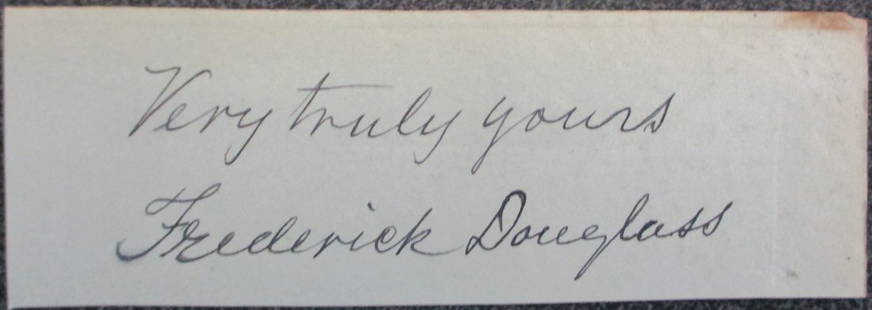 Very truly yours
Frederick Douglass